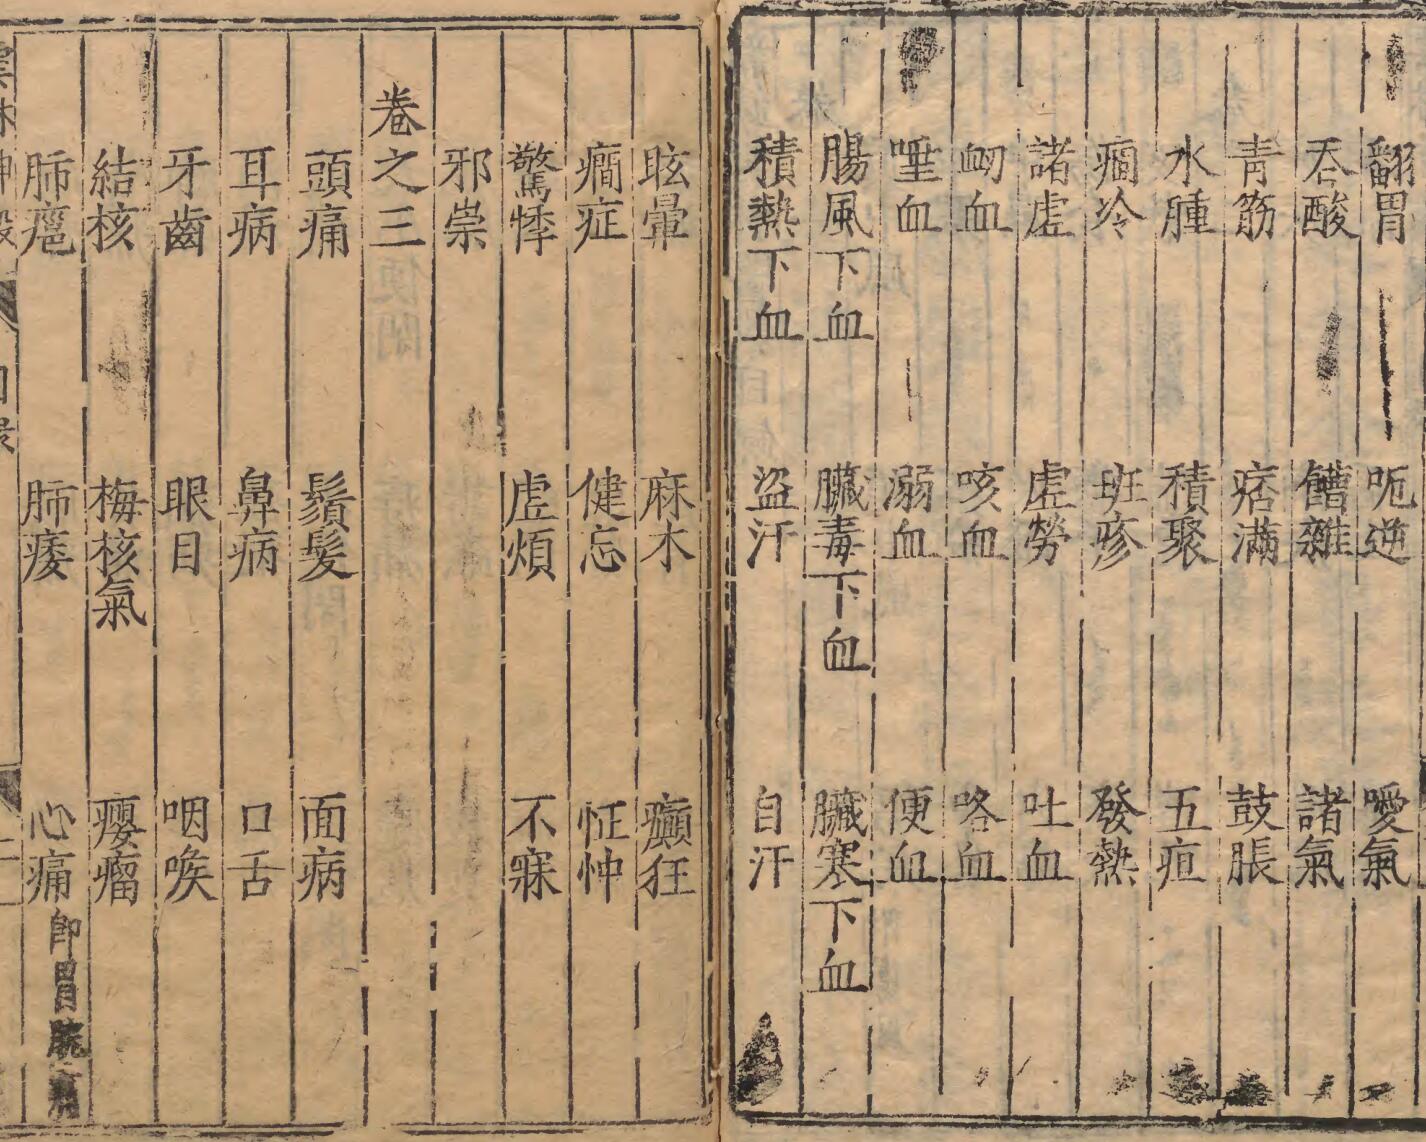 翻胃 呃逆 噯氣
吞酸 饋雜 諸氣
青筋 痞滿 鼓脹
水腫 積聚 五疸
痼冷 班疹 發熱
諸虛 虛勞 吐血
衂血 咳血 咯血
唾血 溺血 便血
腸風下血 臟毒下血 臟寒下血
積熱下血 盜汗 自汗
眩暈 麻木 癲狂
癇症 健忘 怔忡
驚悸 虛煩 不寐
邪祟
卷之三
頭痛 鬚髮 面病
耳病 鼻病 口舌
牙齒 眼目 咽喉
結核 梅核氣 癭瘤
肺癰 肺痿 心痛 即胃脘痛
雲林神彀 目錄 二